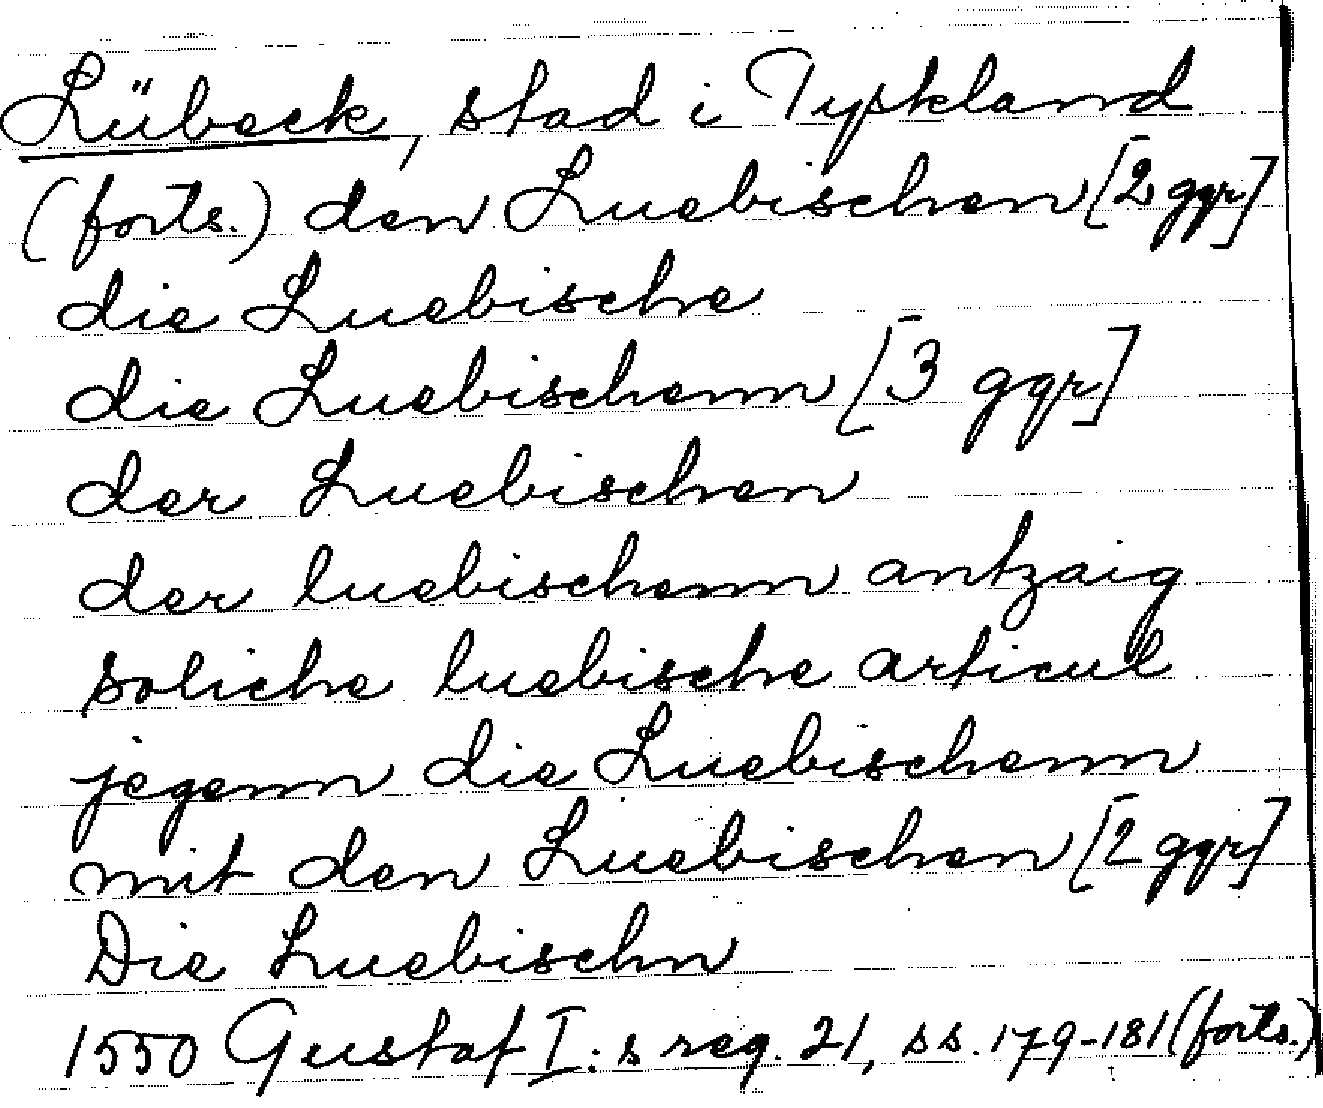 Lübeck, stad i Tyskland
(forts.) den Luebischen [2 ggr]
die Luebische
die Luebischenn [3 ggr]
der Luebischen
der luebischenn antzaig
soliche luebische articul
jegenn die Luebischenn
mit den Luebischen [2 ggr]
Die Luebischn
1550 Gustaf I:s reg. 21, ss. 179-181 (forts.)